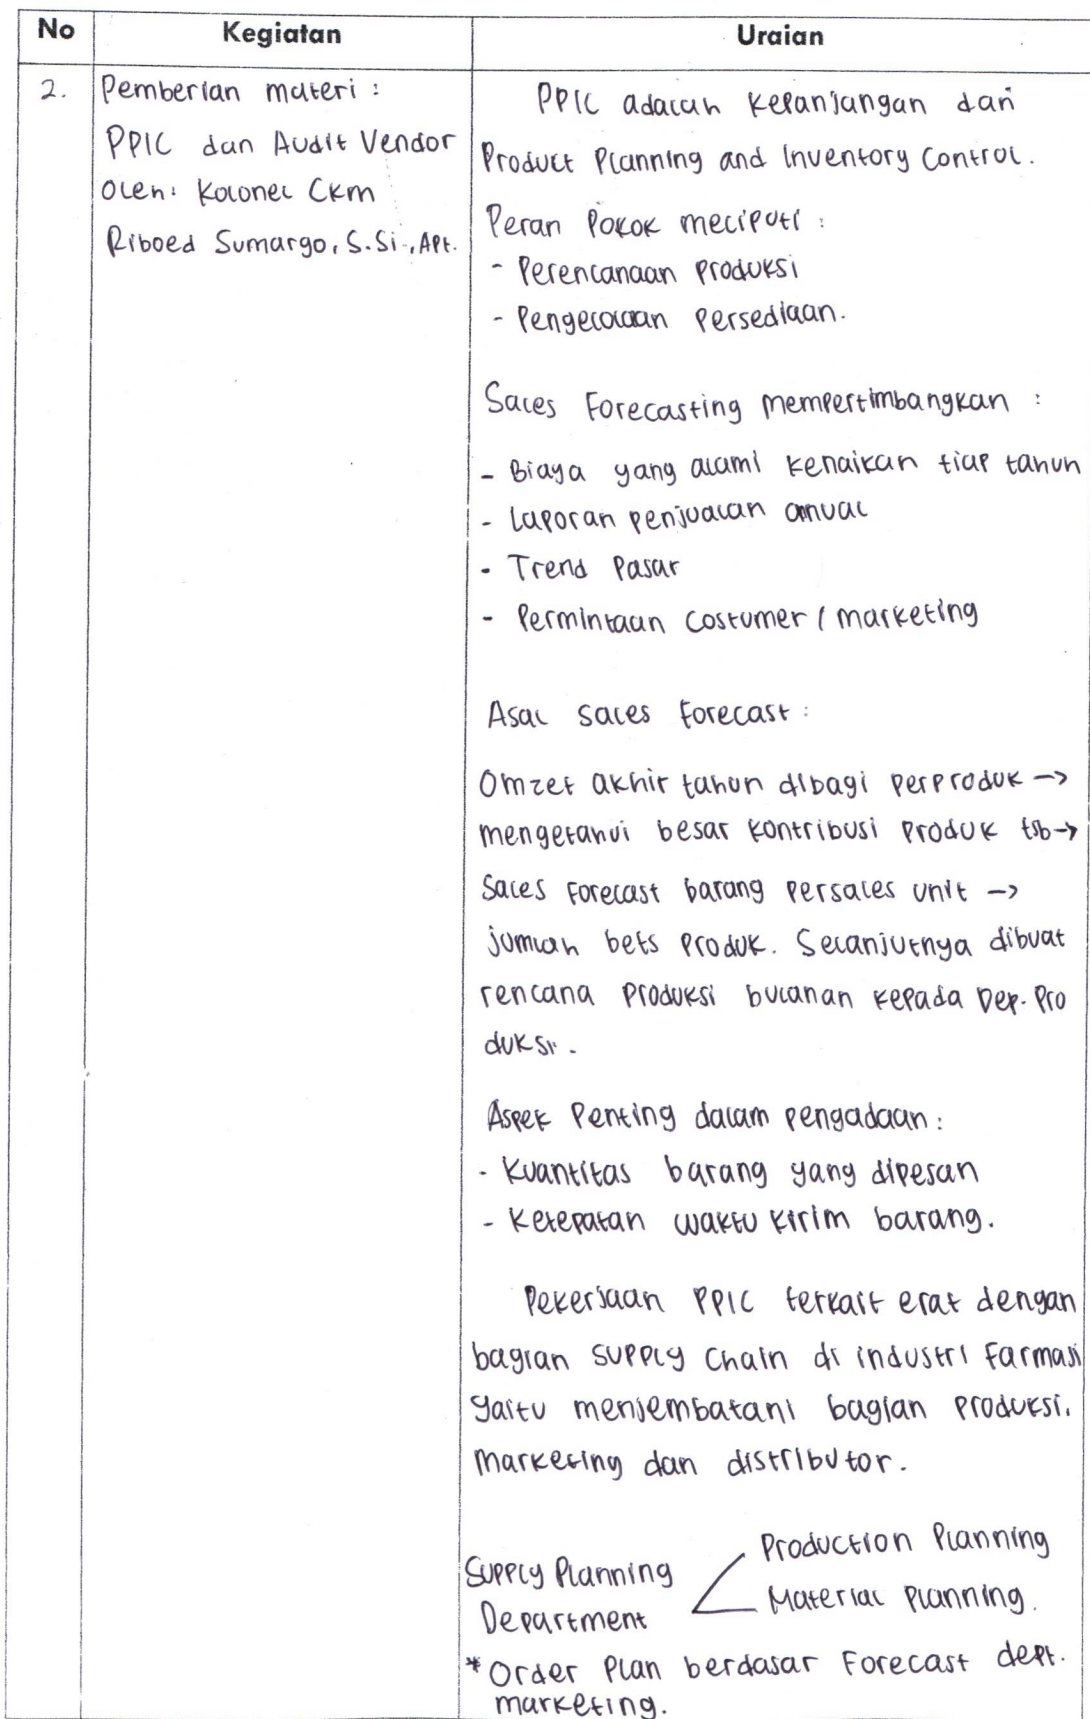 No Kegiatan Uraian
2. Pemberian materi :
PPIC dan Audit Vendor
Oleh: Kolonel Ckm
Riboed Sumargo, S.Si., Apt.
PPIC adalah kepanjangan dari
Product Planning and Inventory Control.
Peran Pokok meliputi :
- Perencanaan produksi
- Pengelolaan Persediaan.
Sales Forecasting mempertimbangkan :
- Biaya yang alami kenaikan tiap tahun
- Laporan penjualan annual
- Trend Pasar
- Permintaan Costumer / marketing
Asal sales forecast :
Omzet akhir tahun dibagi perproduk ->
mengetahui besar kontribusi produk tsb ->
Sales Forecast barang persales unit ->
jumlah bets produk. Selanjutnya dibuat
rencana produksi bulanan kepada Dep. Pro
duksi.
Aspek Penting dalam pengadaan :
- Kuantitas barang yang dipesan
- Ketepatan waktu kirim barang.
Pekerjaan PPIC terkait erat dengan
bagian supply chain di industri Farmasi
yaitu menjembatani bagian produksi,
marketing dan distributor.
Supply Planning Department
Production Planning
Material Planning.
* Order Plan berdasar Forecast dept.
marketing.